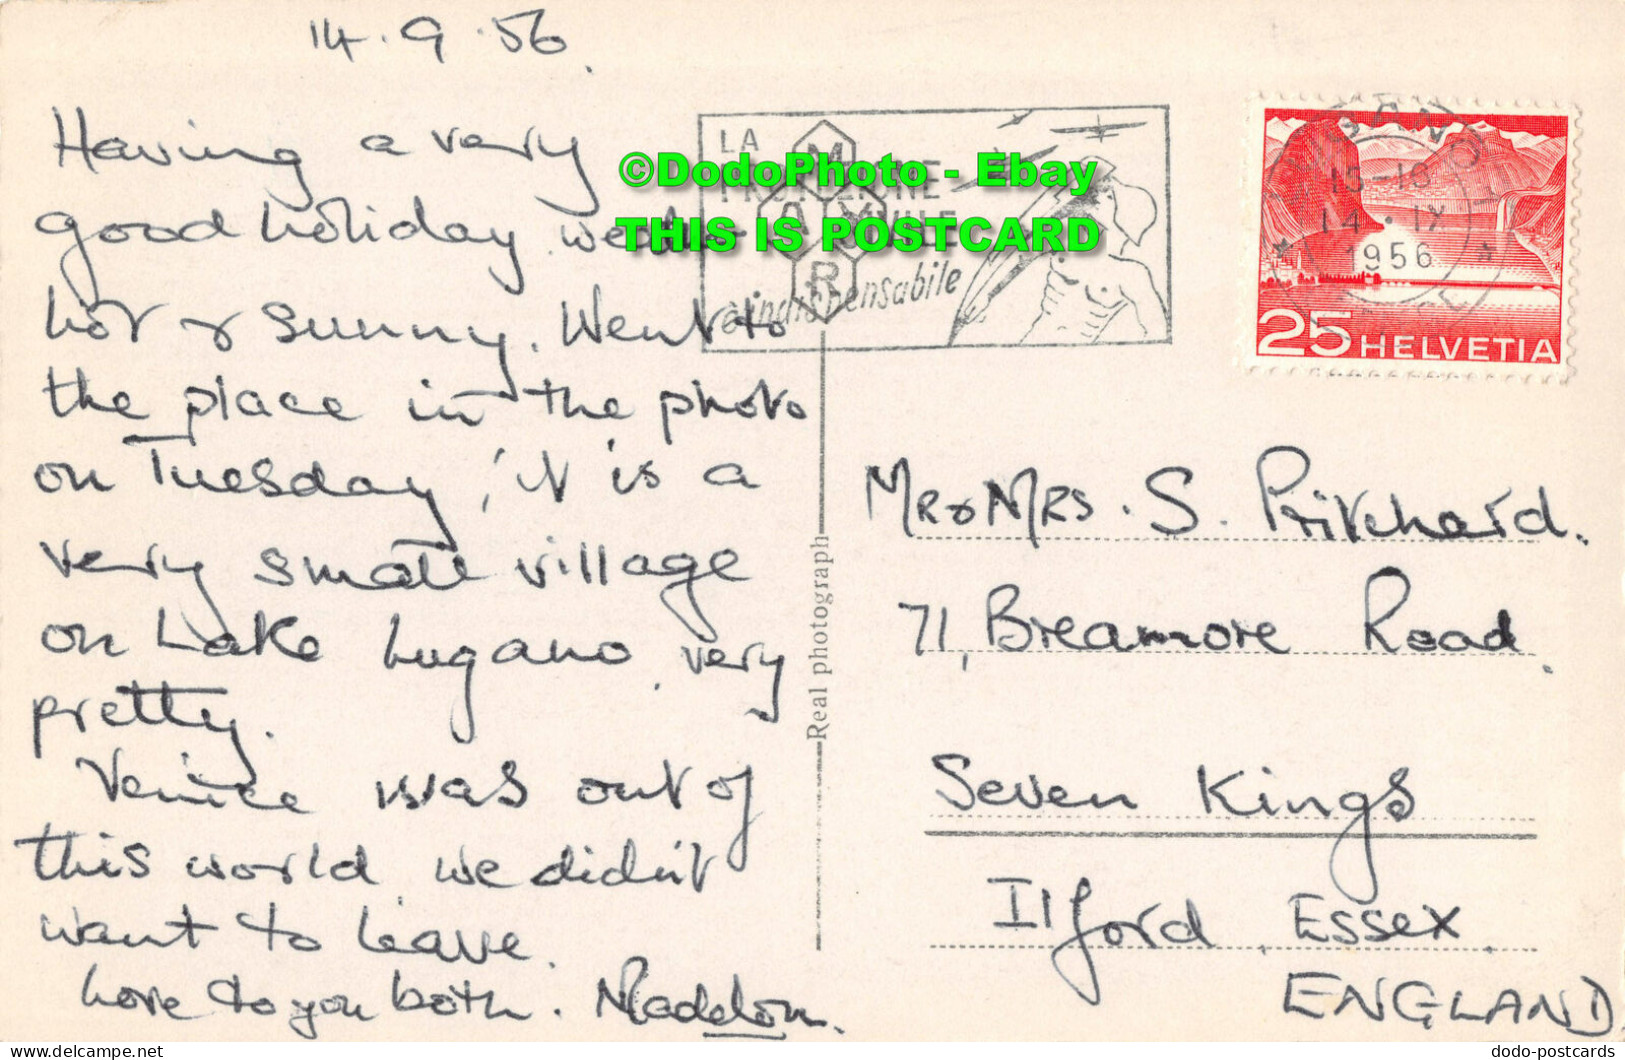 14.9.56.
Having a very
good holiday
hot & sunny. Went to
the place in the photo
on Tuesday, it is a
very small village
on Lake Lugano, very
pretty.
Venice was out of
this world, we didn't
want to leave.
Love to you both.
LA
MAYR
è indispensabile
©DodoPhoto - Ebay
THIS IS POSTCARD
LUGANO
14. IX
1956
25 HELVETIA
Real photograph
MR & MRS. S. Pritchard.
71, Breamore Road.
Seven Kings
Ilford, ESSEX.
ENGLAND
dodo-postcards